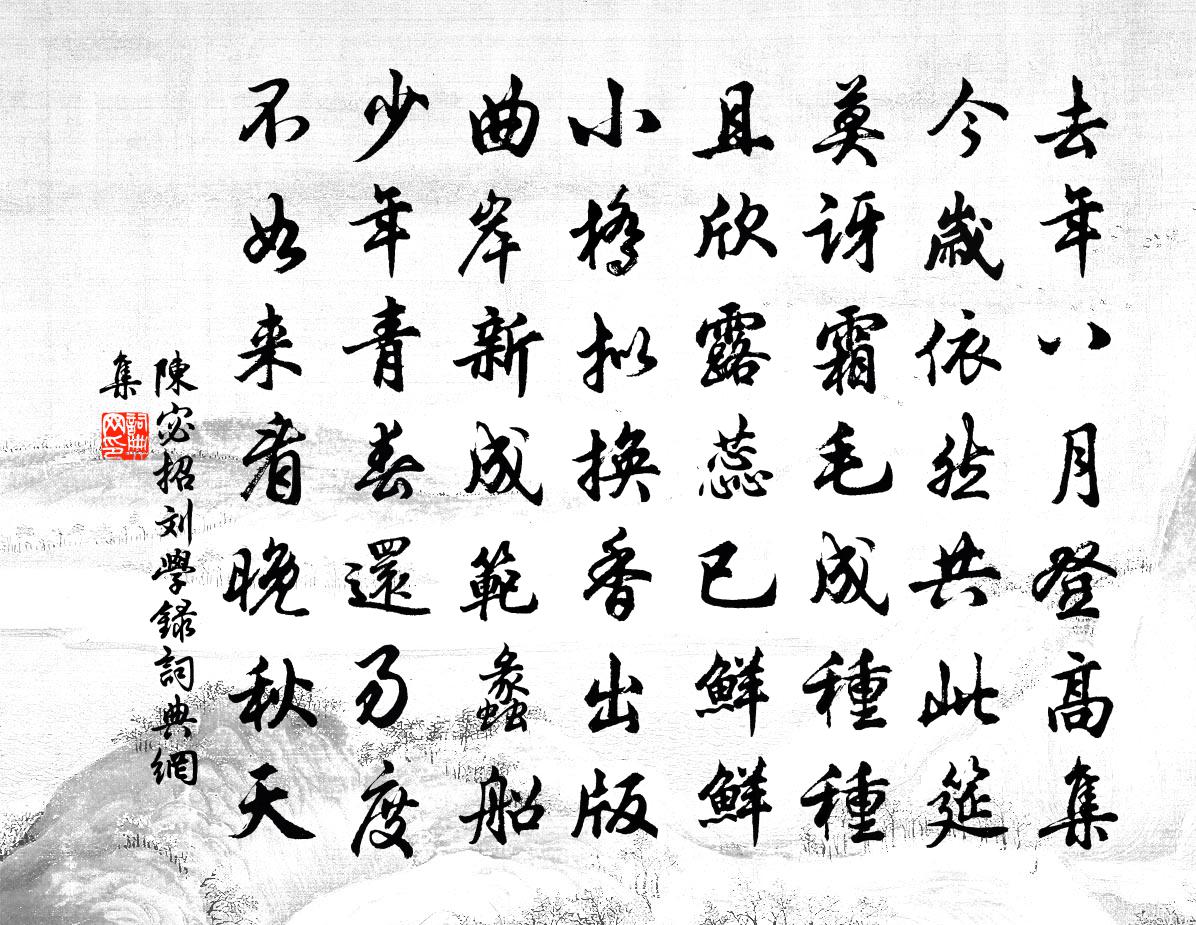 去年八月登高集
今歲依然共此筵
莫訝霜毛成種種
且欣露蕊已鮮鮮
小橋拟換香出版
曲岸新成範蠡船
少年青春還易度
不如来看晚秋天
陳宓招刘學録詞典網
集
詞典网印